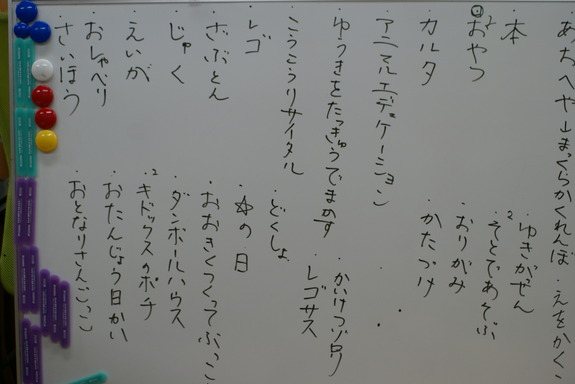 あおへや↓まっくらかくれんぼ
えをかく
本
ゆきがっせん
2 そとであそぶ
おやつ
おりがみ
カルタ
かたづけ
アニマルエデュケーション
ゆうきをたっきゅうでまかす
かいけつゾロリ
こうこうリサイタル
レゴサス
レゴ
どくしょ
☆の日
ざぶとん
おおきくつくってぷっこ
じゃく
ダンボールハウス
えいが
2 キドックスのポチ
おしゃべり
おたんじょう日かい
さいほう
おとなりさんごっこ